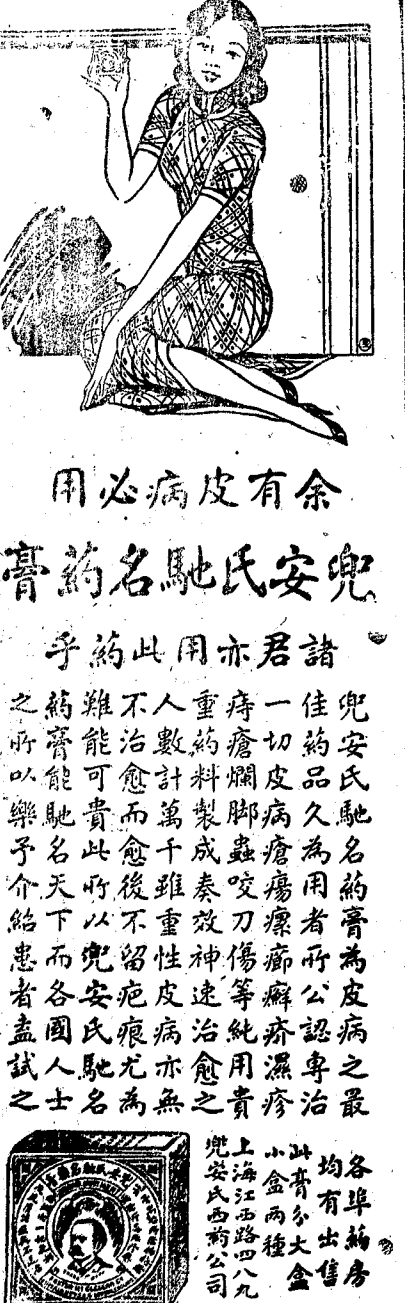 余有皮病必用
兜安氏馳名葯膏
諸君亦用此葯乎
兜安氏馳名葯膏為皮病之最
佳葯品久為用者所公認專治
一切皮病瘡瘍瘭癤癬疥濕疹
痔瘡爛脚蟲咬刀傷等純用貴
重葯料製成奏效神速治愈之
人數計萬千雖重性皮病亦無
不治愈而愈後不留疤痕尤為
難能可貴此所以兜安氏馳名
葯膏能馳名天下而各國人士
之所以樂予介紹患者盍試之
各埠葯房
均有出售
此膏分大盒
小盒兩種
上海江西路四八九
兜安氏西葯公司